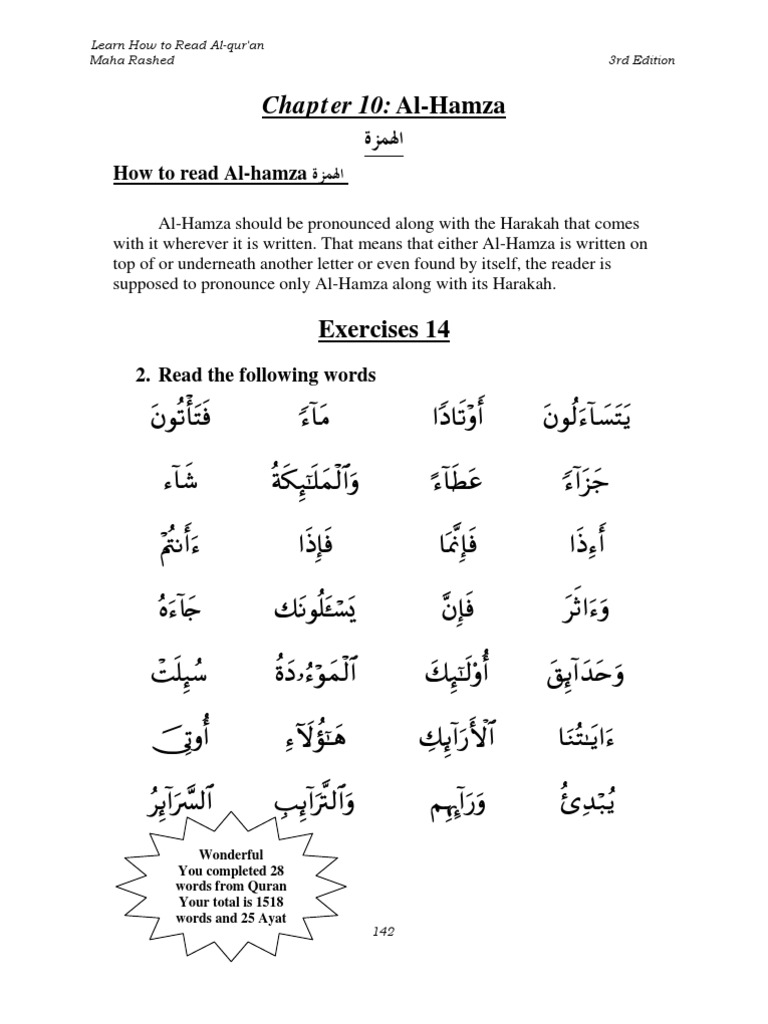 Learn How to Read Al-qur'an
Maha Rashed 3rd Edition
Chapter 10: Al-Hamza
الهمزة
How to read Al-hamza الهمزة
Al-Hamza should be pronounced along with the Harakah that comes
with it wherever it is written. That means that either Al-Hamza is written on
top of or underneath another letter or even found by itself, the reader is
supposed to pronounce only Al-Hamza along with its Harakah.
Exercises 14
2. Read the following words
يَتَسَآءَلُونَ أَوْتَادًا مَآءً فَتَأْتُونَ
جَزَآءً عَطَآءً وَٱلْمَلَٰٓئِكَةُ شَآء
أَءِذَا فَإِنَّمَا فَإِذَا ءَأَنتُمْ
وَءَاثَرَ فَإِنَّ يَسْـَٔلُونَك جَآءَهُ
وَحَدَآئِقَ أُوْلَٰٓئِكَ ٱلْمَوْءُۥدَةُ سُئِلَتْ
ءَايَٰتُنَا ٱلْأَرَآئِكِ هَٰٓؤُلَآءِ أُوتِىَ
يُبْدِئُ وَرَآئِهِم وَٱلتَّرَآئِبِ ٱلسَّرَآئِرُ
Wonderful
You completed 28
words from Quran
Your total is 1518
words and 25 Ayat
142